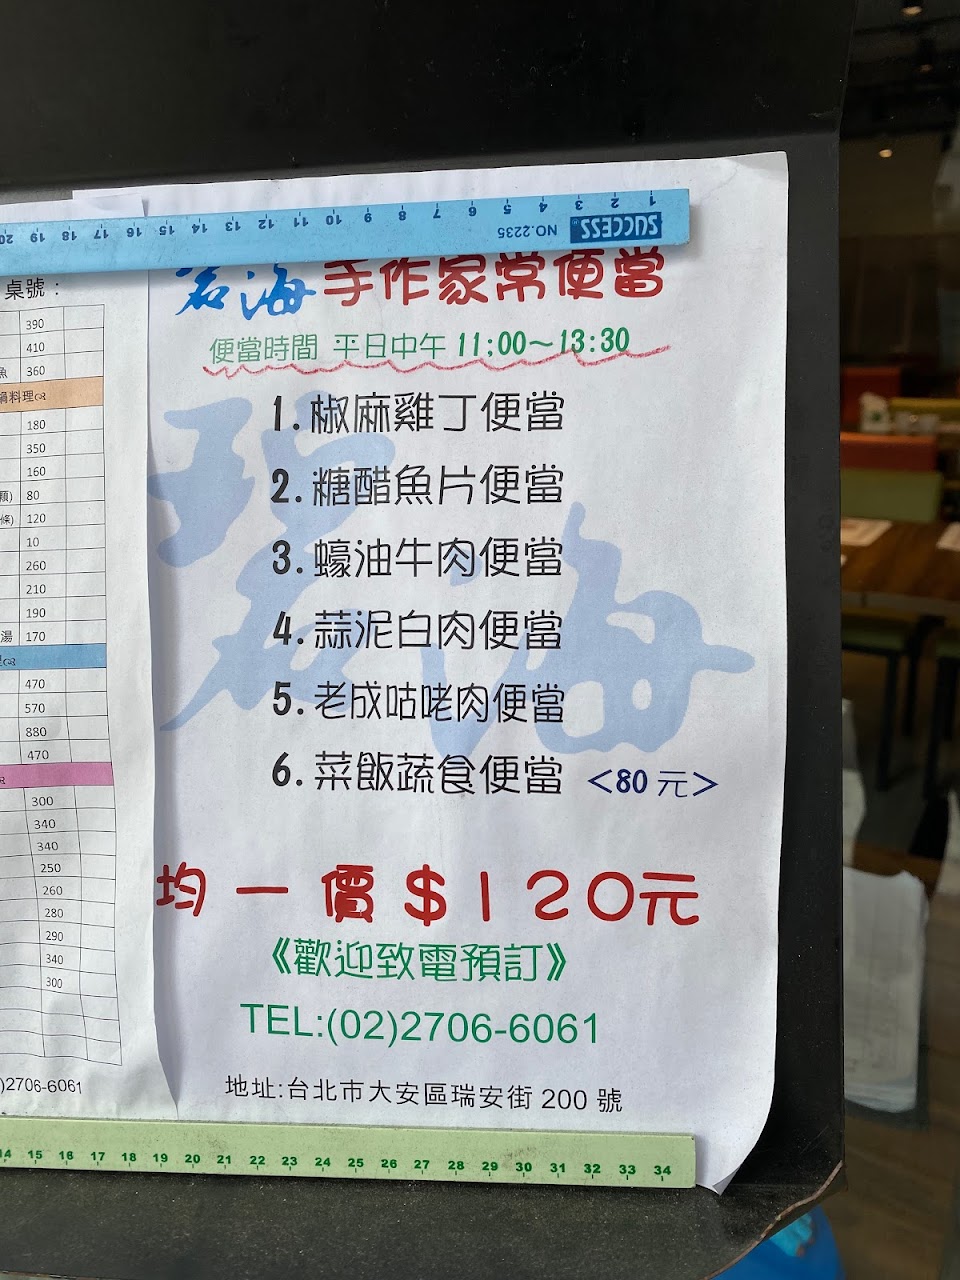 1 2 3 4 5 6 7 8 9 10 11 12 13 14 15 16 17 18 19 20
SUCCESS NO.2235
碧海 手作家常便當
便當時間 平日中午 11:00~13:30
1.椒麻雞丁便當
2.糖醋魚片便當
3.蠔油牛肉便當
4.蒜泥白肉便當
5.老成咕咾肉便當
6.菜飯蔬食便當 <80 元>
均一價$120元
《歡迎致電預訂》
TEL:(02)2706-6061
地址:台北市大安區瑞安街 200 號
碧海
桌號:
390
410
魚 360
鍋料理
180
350
160
顆) 80
條) 120
10
260
210
190
湯 170
470
570
880
470
300
340
340
250
260
280
290
340
300
)2706-6061
14 15 16 17 18 19 20 21 22 23 24 25 26 27 28 29 30 31 32 33 34